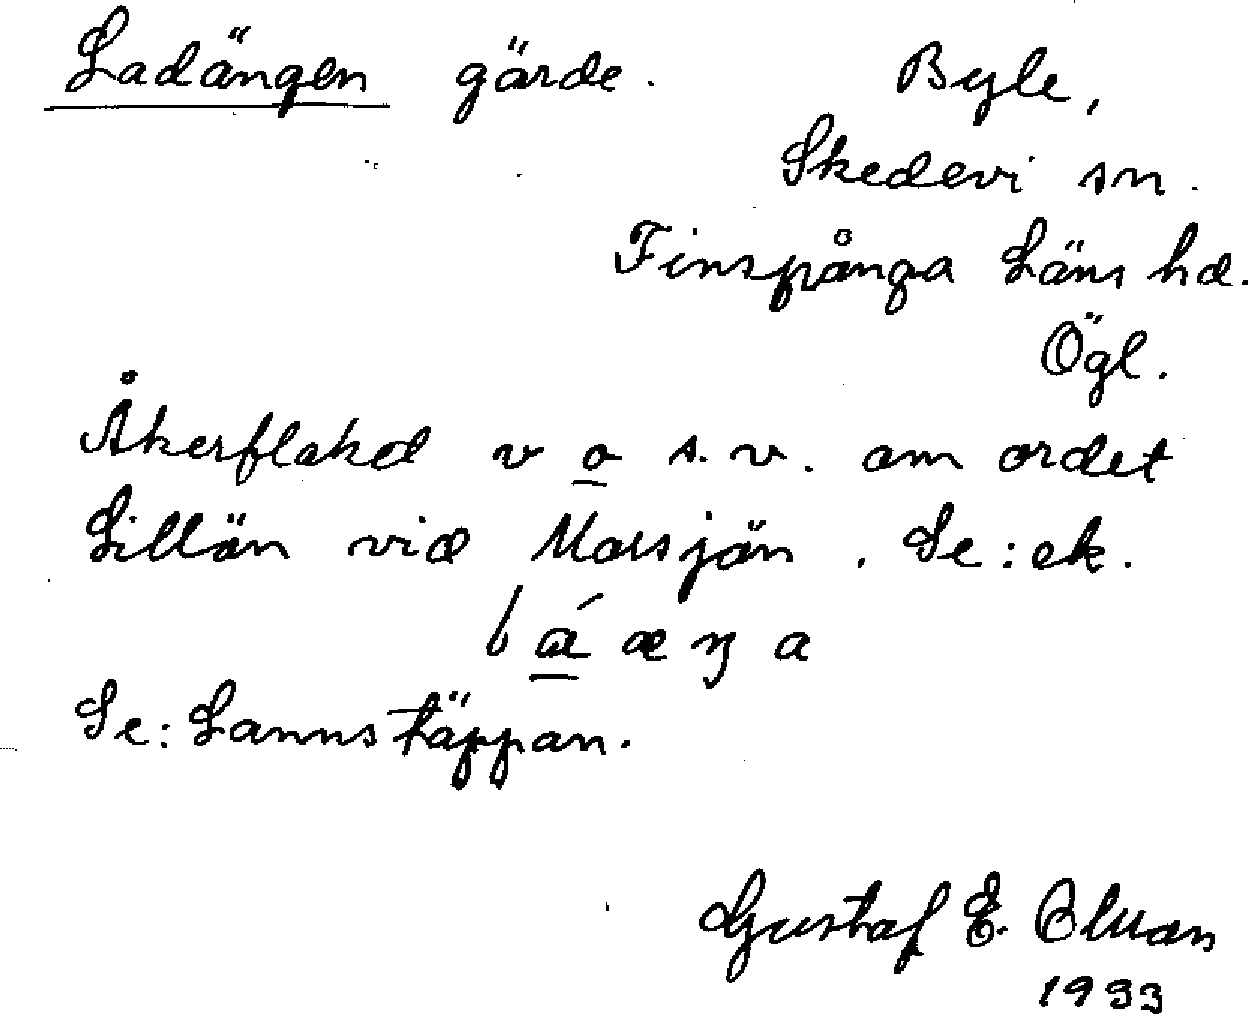 Ladängen gärde. Byle,
Skedevi sn.
Finspånga Läns hd.
Ögl.
Åkerflakd v o s.v. om ordet
Lillän vid Morsjön. Se: ek.
Se: Lannstäppan.
Gustaf E.
1933